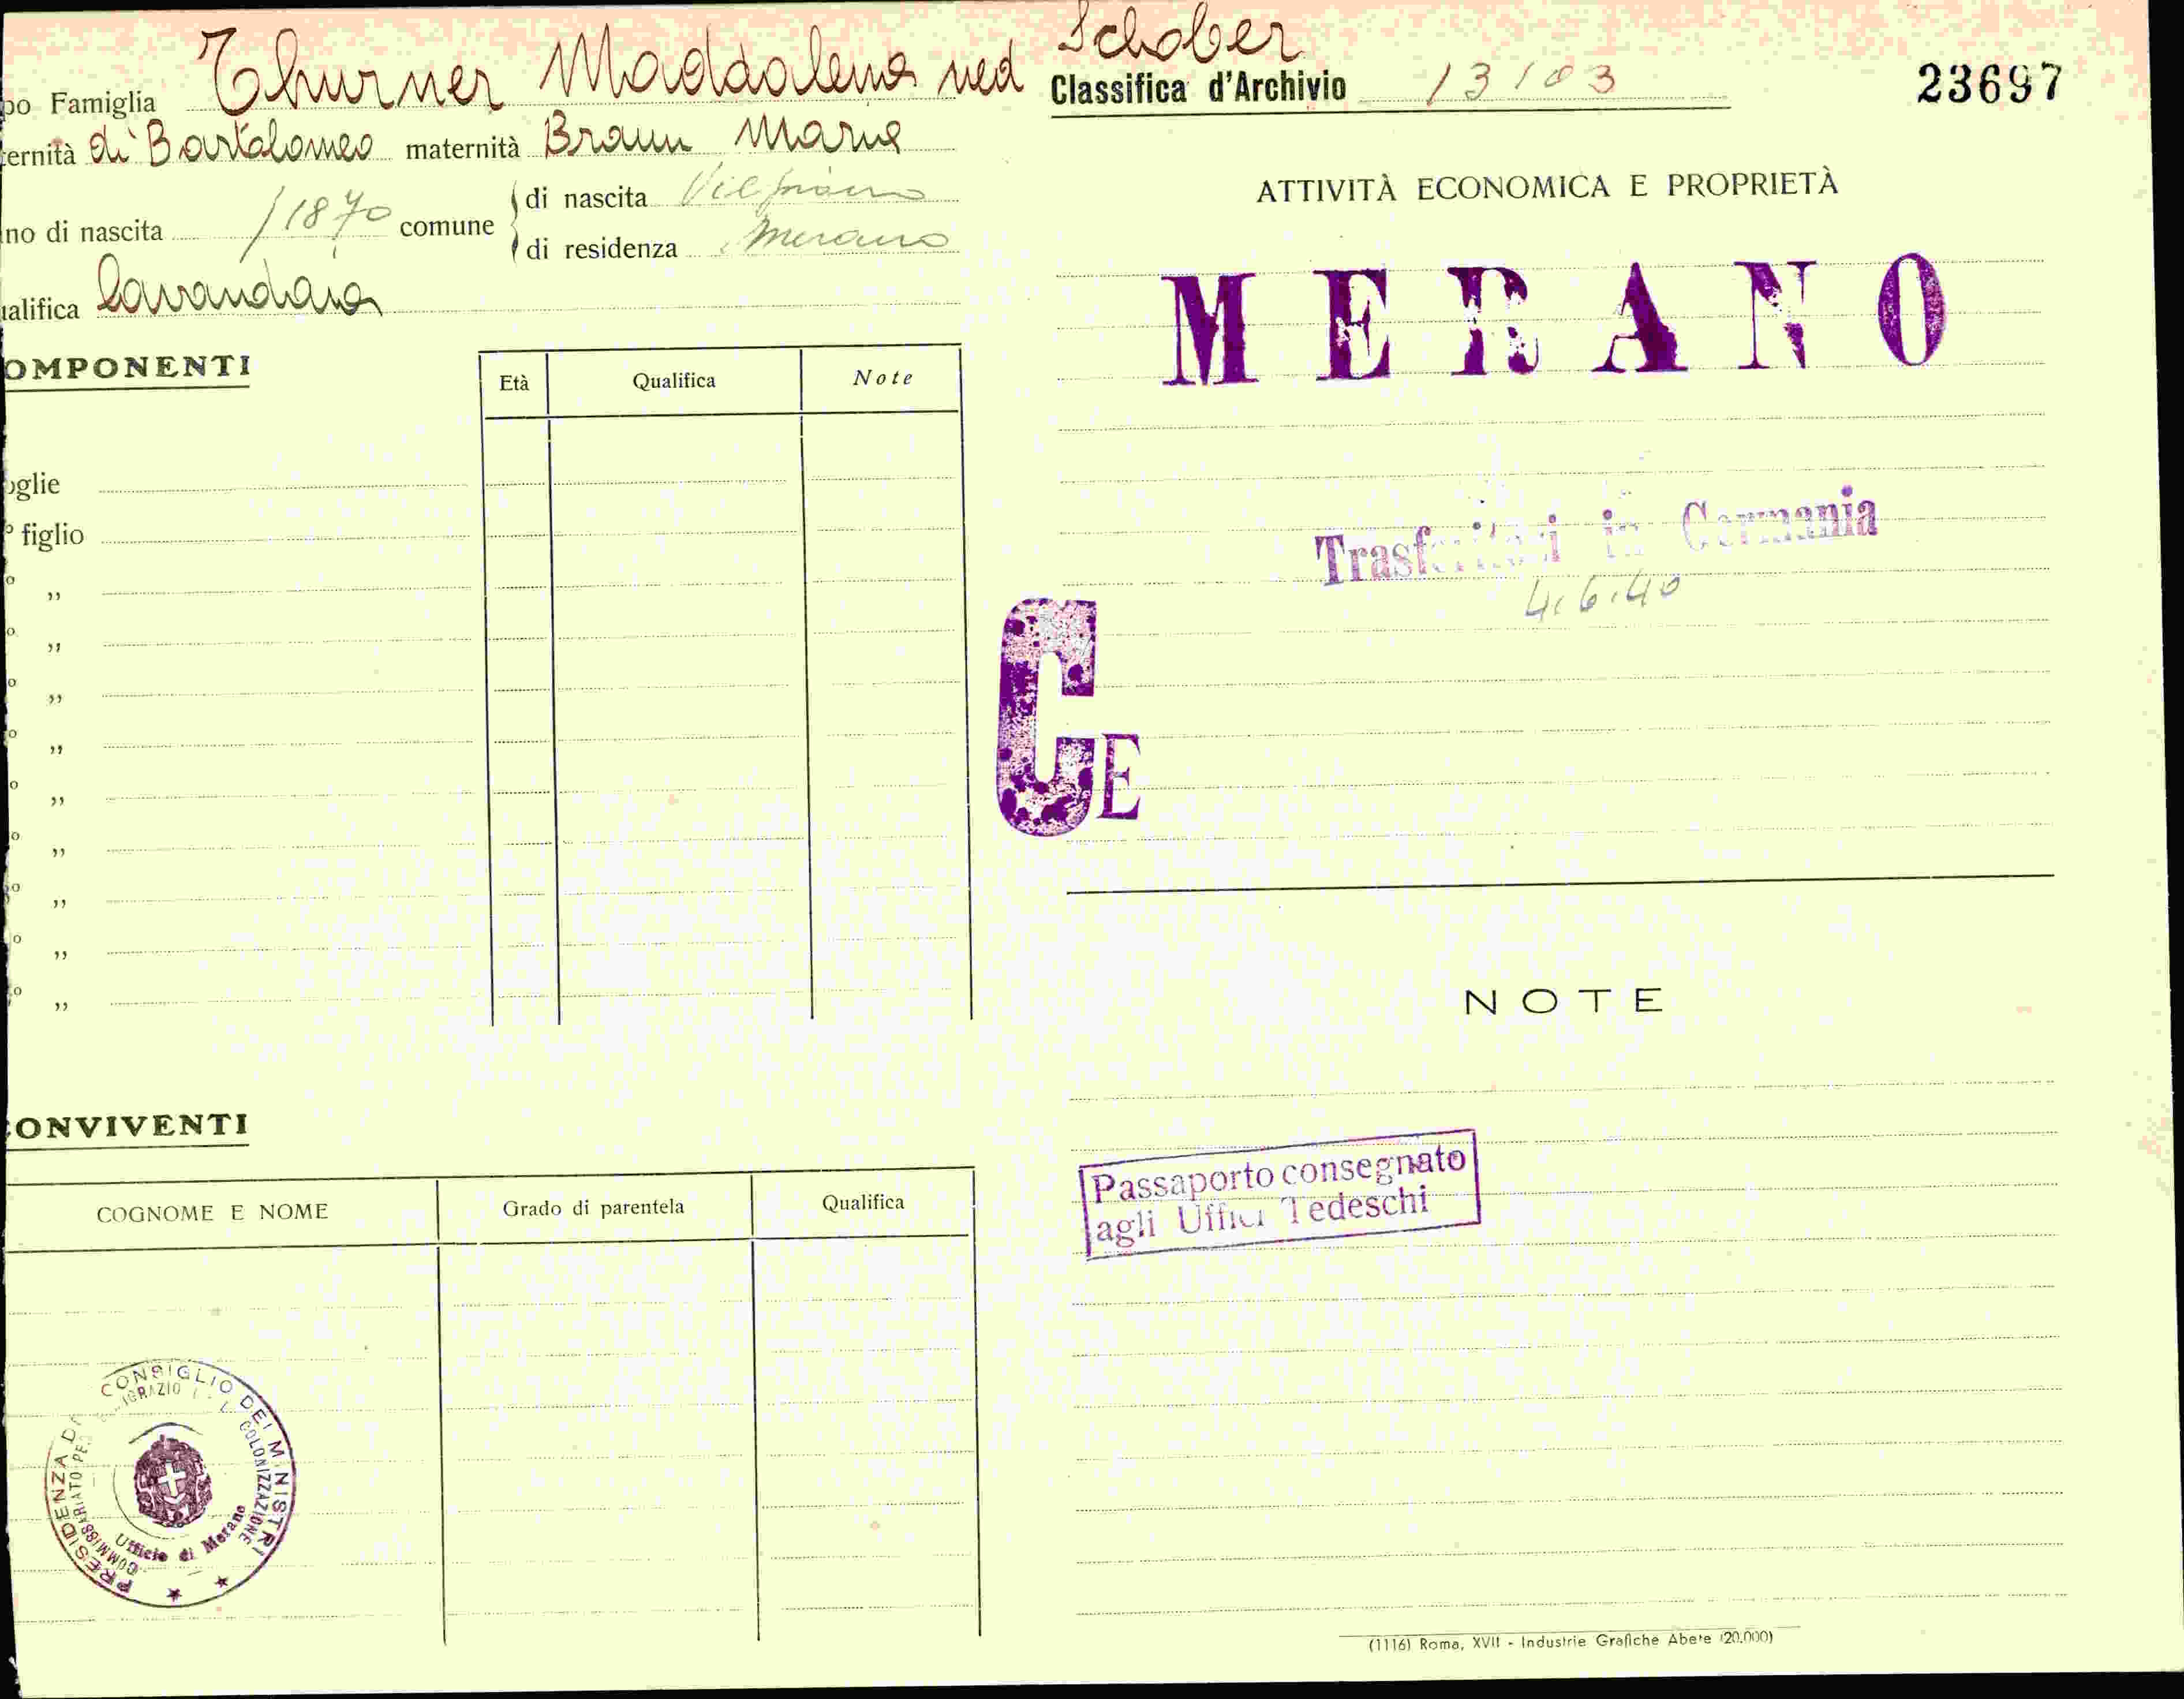 po Famiglia Thurner Maddalena ved Schober
ernità di Bartolomeo maternità Braun Maria
no di nascita /1870 comune di nascita Vilpiano
di residenza Merano
alifica lavandaia
OMPONENTI
Età Qualifica Note
oglie
o figlio
o „
o „
o „
o „
o „
o „
o „
o „
o „
ONVIVENTI
COGNOME E NOME Grado di parentela Qualifica
PRESIDENZA DEL CONSIGLIO DEI MINISTRI
COMMISSARIATO PER COLONIZZAZIONE
Ufficio di Merano
Classifica d'Archivio 13103
23697
ATTIVITÀ ECONOMICA E PROPRIETÀ
MERANO
Trasferitosi in Germania
4.6.40
CE
NOTE
Passaporto consegnato
agli Uffici Tedeschi
(1116) Roma, XVII - Industrie Grafiche Abete (20.000)